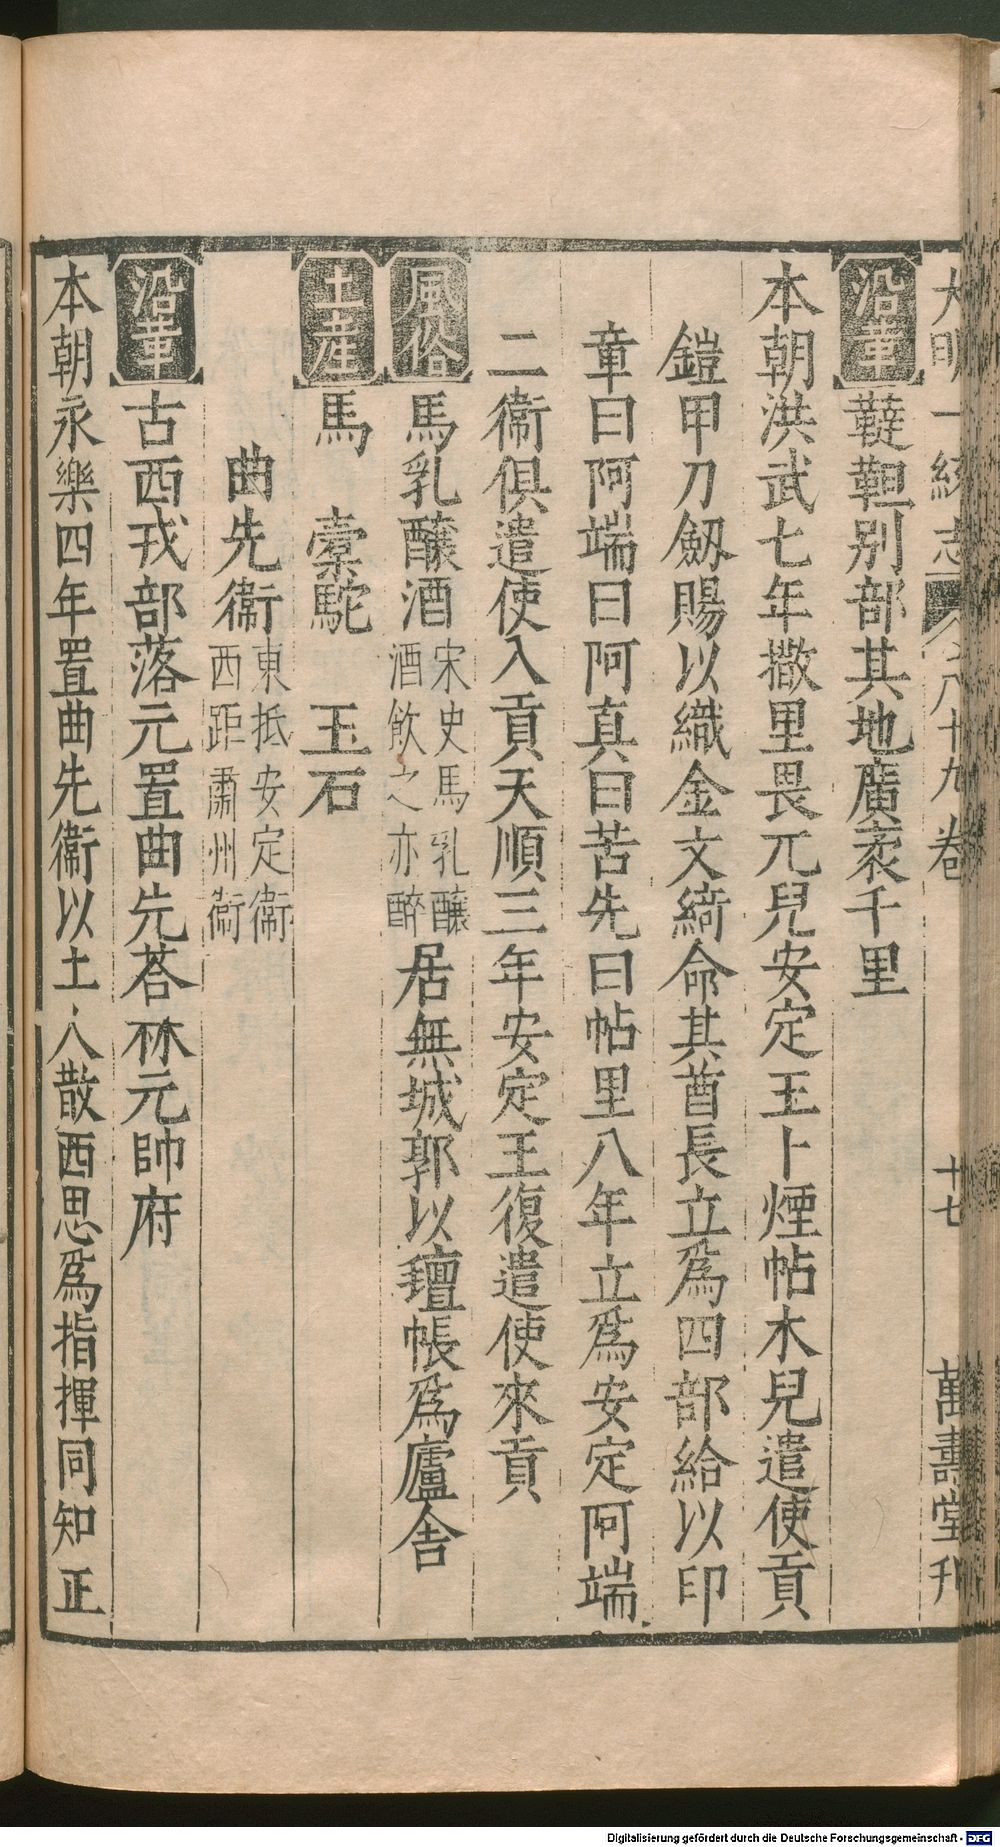 大明一統志 八十九卷 十七 萬壽堂刋
沿革 韃靼别部其地廣袤千里
本朝洪武七年撒里畏兀兒安定王卜煙帖木兒遣使貢
鎧甲刀劔賜以織金文綺命其酋長立爲四部給以印
章曰阿端曰阿真曰苦先曰帖里八年立爲安定阿端
二衞俱遣使入貢天順三年安定王復遣使來貢
風俗 馬乳醸酒 宋史馬乳醸酒飲之亦醉 居無城郭以氊帳爲廬舎
土産 馬 槖駝 玉石
曲先衞 東抵安定衞西距肅州衞
沿革 古西戎部落元置曲先荅林元帥府
本朝永樂四年置曲先衞以土人散西思爲指揮同知正
Digitalisierung gefördert durch die Deutsche Forschungsgemeinschaft - DFG